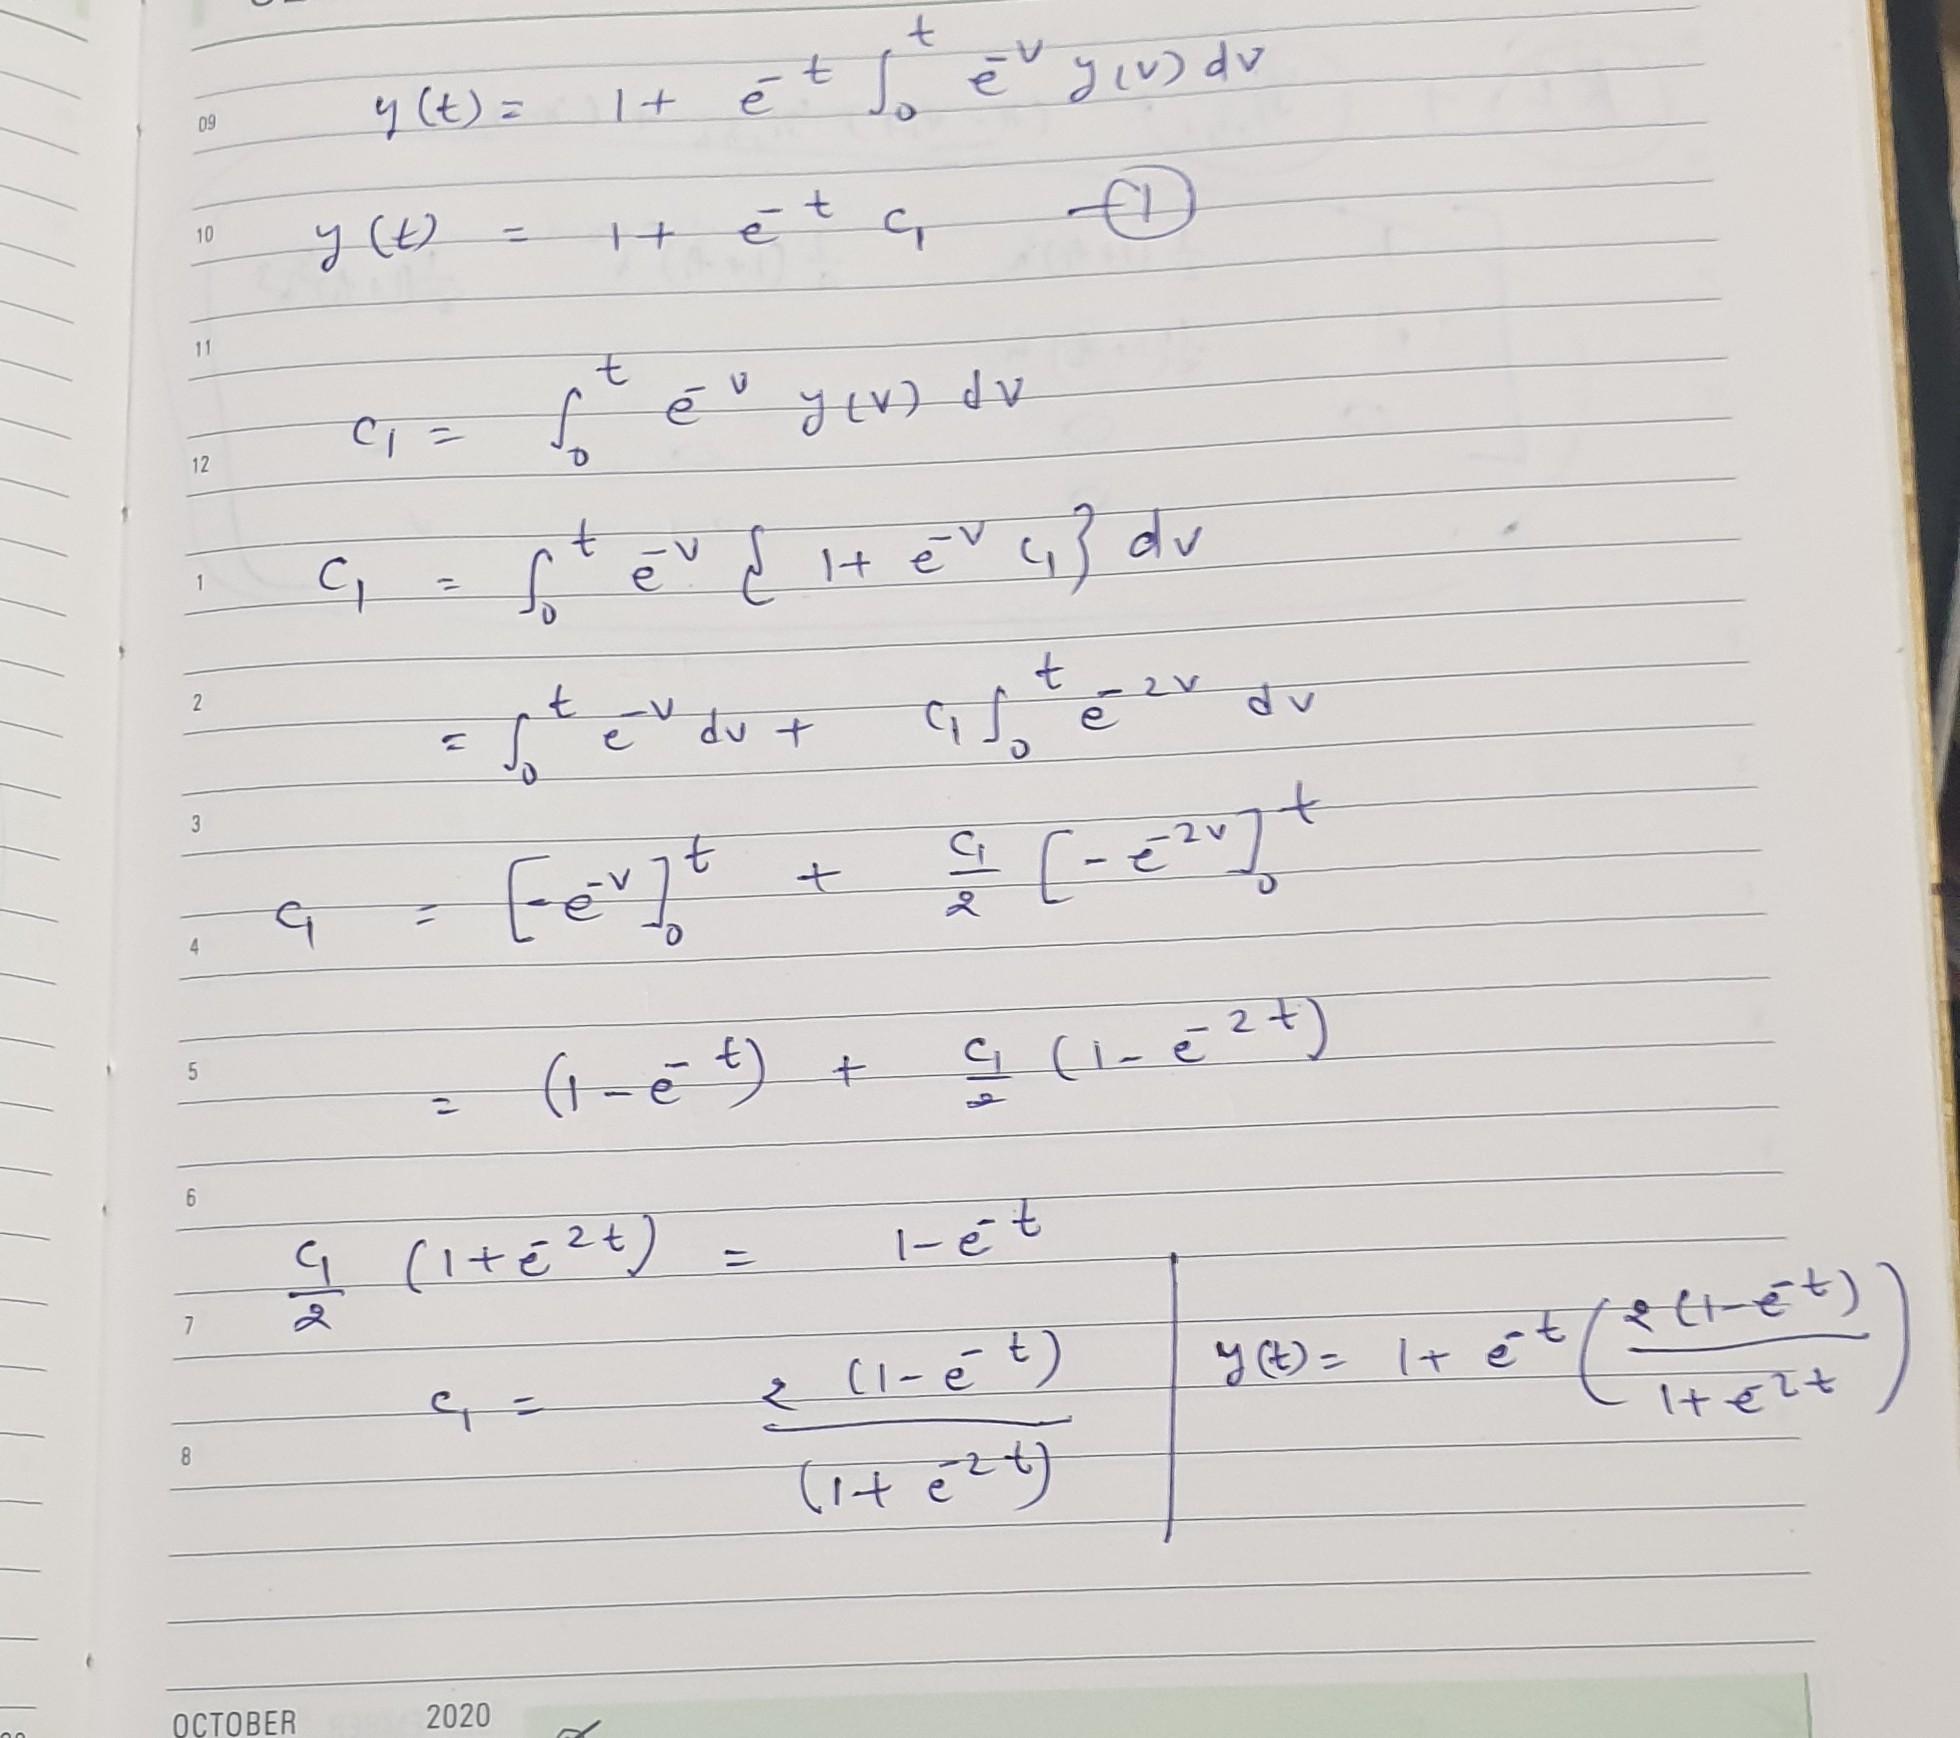 09 y(t) = 1 + e^{-t} ∫_0^t e^{-v} y(v) dv
10 y(t) = 1 + e^{-t} c₁ —①
11
c₁ = ∫_0^t e^{-v} y(v) dv
12
1 c₁ = ∫_0^t e^{-v} { 1 + e^{-v} c₁ } dv
2 = ∫_0^t e^{-v} dv + c₁ ∫_0^t e^{-2v} dv
3
4 c₁ = [-e^{-v}]_0^t + c₁/2 [-e^{-2v}]_0^t
5 = (1 - e^{-t}) + c₁/2 (1 - e^{-2t})
6
c₁/2 (1 + e^{-2t}) = 1 - e^{-t}
7
c₁ = 2 (1 - e^{-t}) / (1 + e^{-2t})
8
y(t) = 1 + e^{-t} ( 2 (1 - e^{-t}) / 1 + e^{-2t} )
OCTOBER 2020